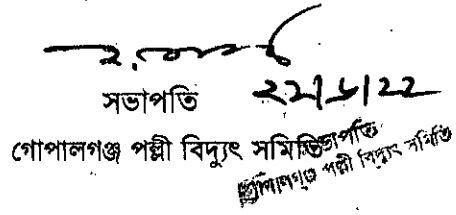 সভাপতি
২২/৬/২২
গোপালগঞ্জ পল্লী বিদ্যুৎ সমিতি
সভাপতি
গোপালগঞ্জ পল্লী বিদ্যুৎ সমিতি